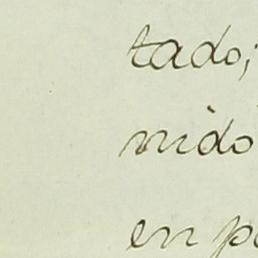 tado;
nido
en po